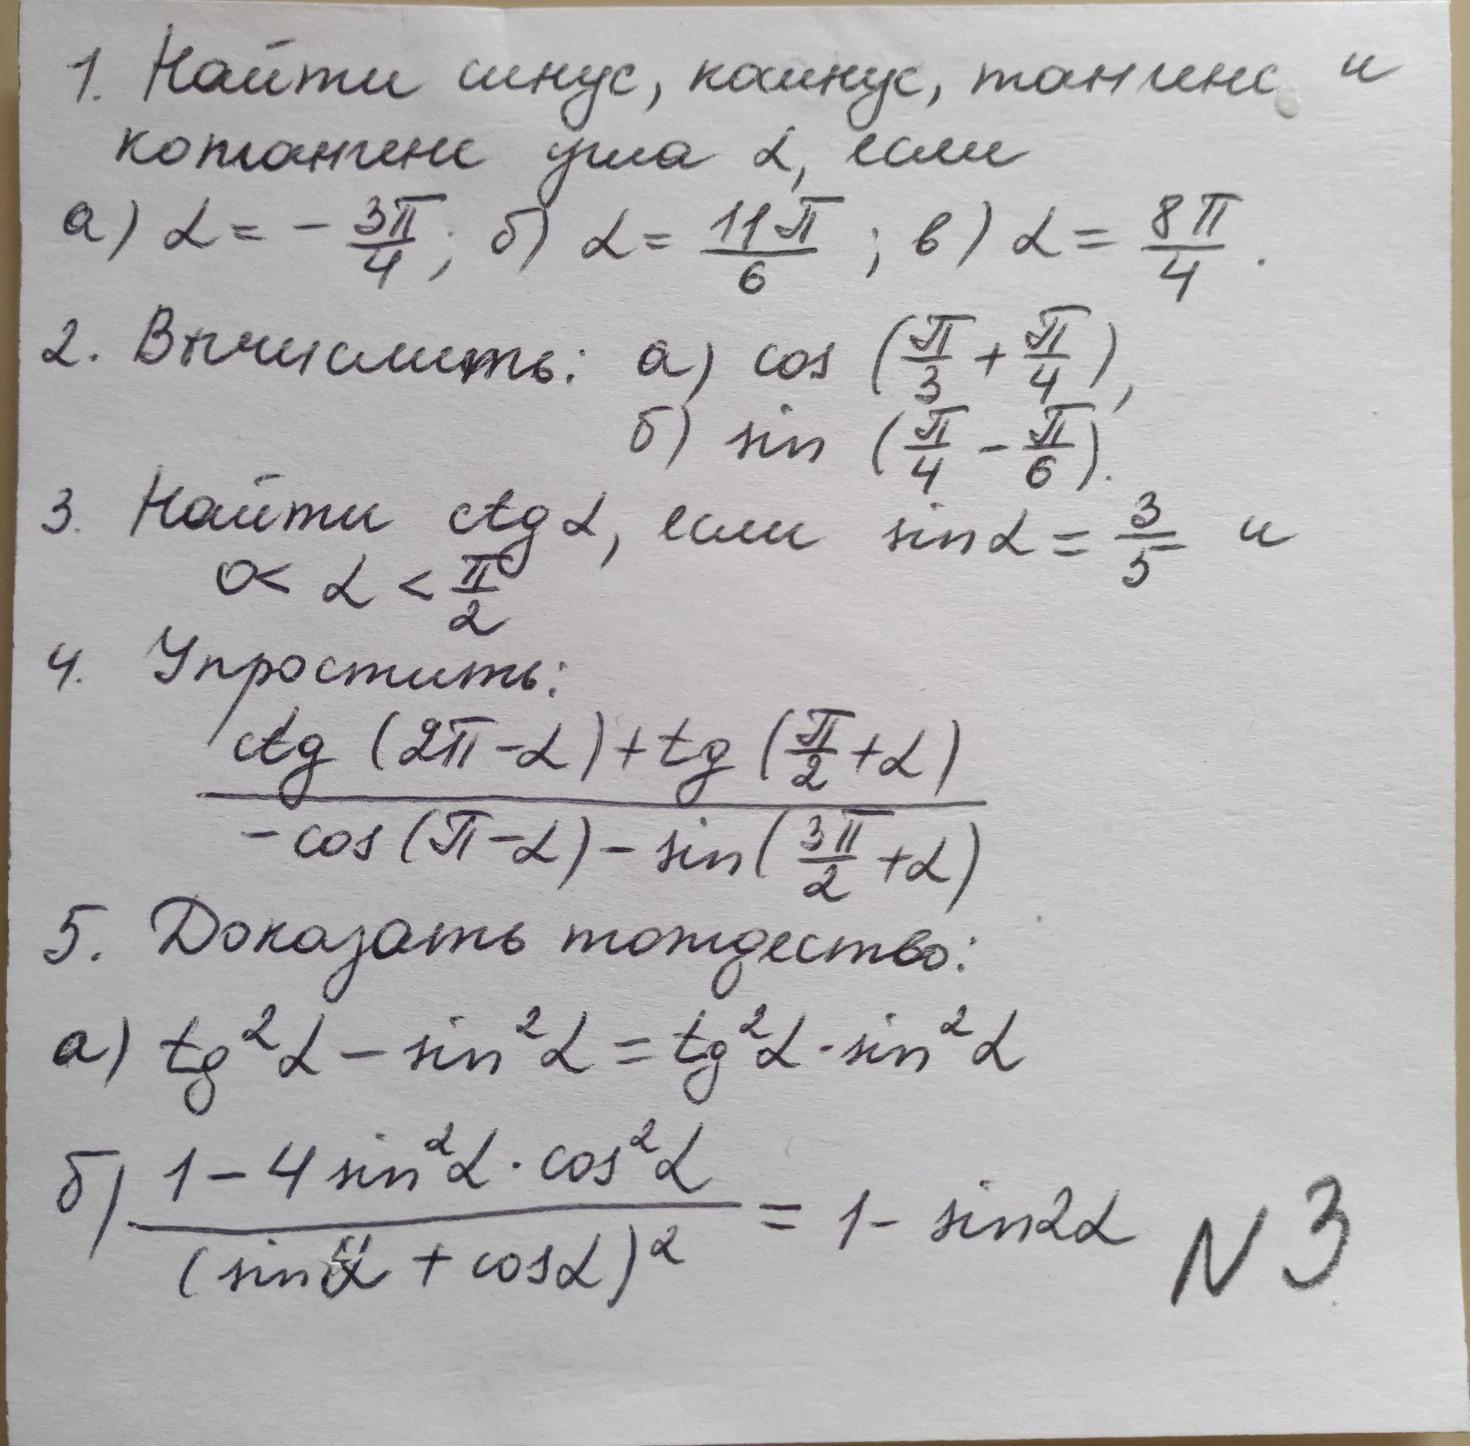 1. Найти синус, косинус, тангенс и
котангенс угла α, если
а) α = - 3π/4; б) α = 11π/6; в) α = 8π/4.
2. Вычислить: а) cos (π/3 + π/4),
б) sin (π/4 - π/6).
3. Найти ctg α, если sin α = 3/5 и
0 < α < π/2
4. Упростить:
ctg (2π - α) + tg (π/2 + α)
- cos (π - α) - sin (3π/2 + α)
5. Доказать тождество:
а) tg²α - sin²α = tg²α · sin²α
б) 1 - 4 sin²α · cos²α
(sin α + cos α)² = 1 - sin2α
N 3